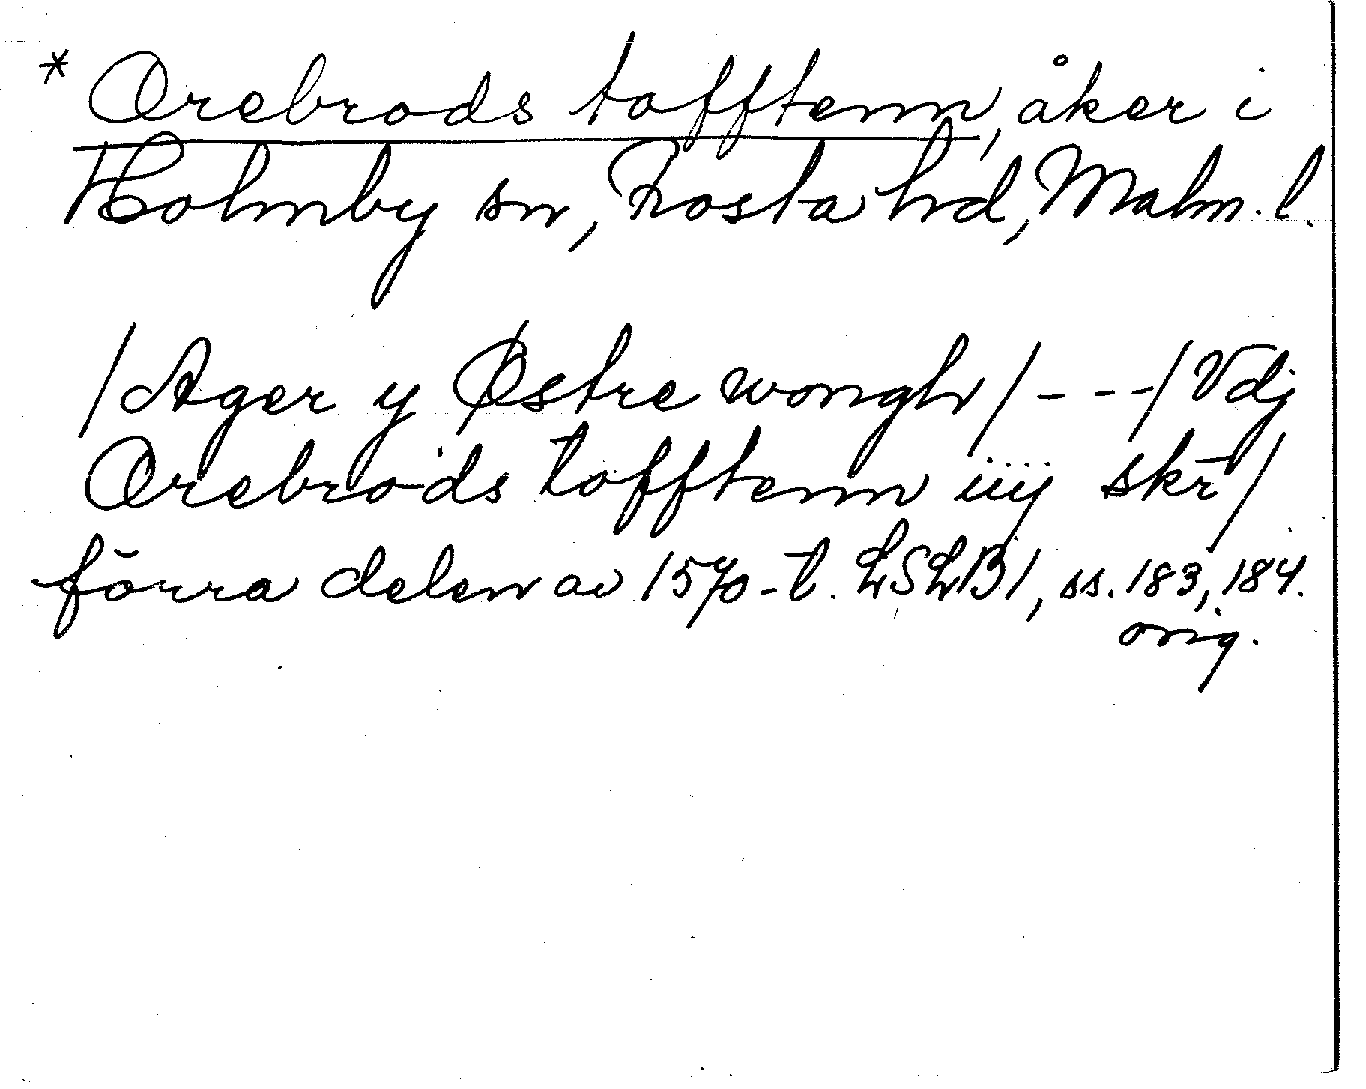 * Orebrods tofftenn, åker i
Holmby sn, Frosta hd, Malm. l.
/Ager y Østre wongh/ - - -/ Vdj
Orebrods tofftenn iiij skr̄/
förra delen av 1570-t. LSLB1, ss. 183, 184.
orig.